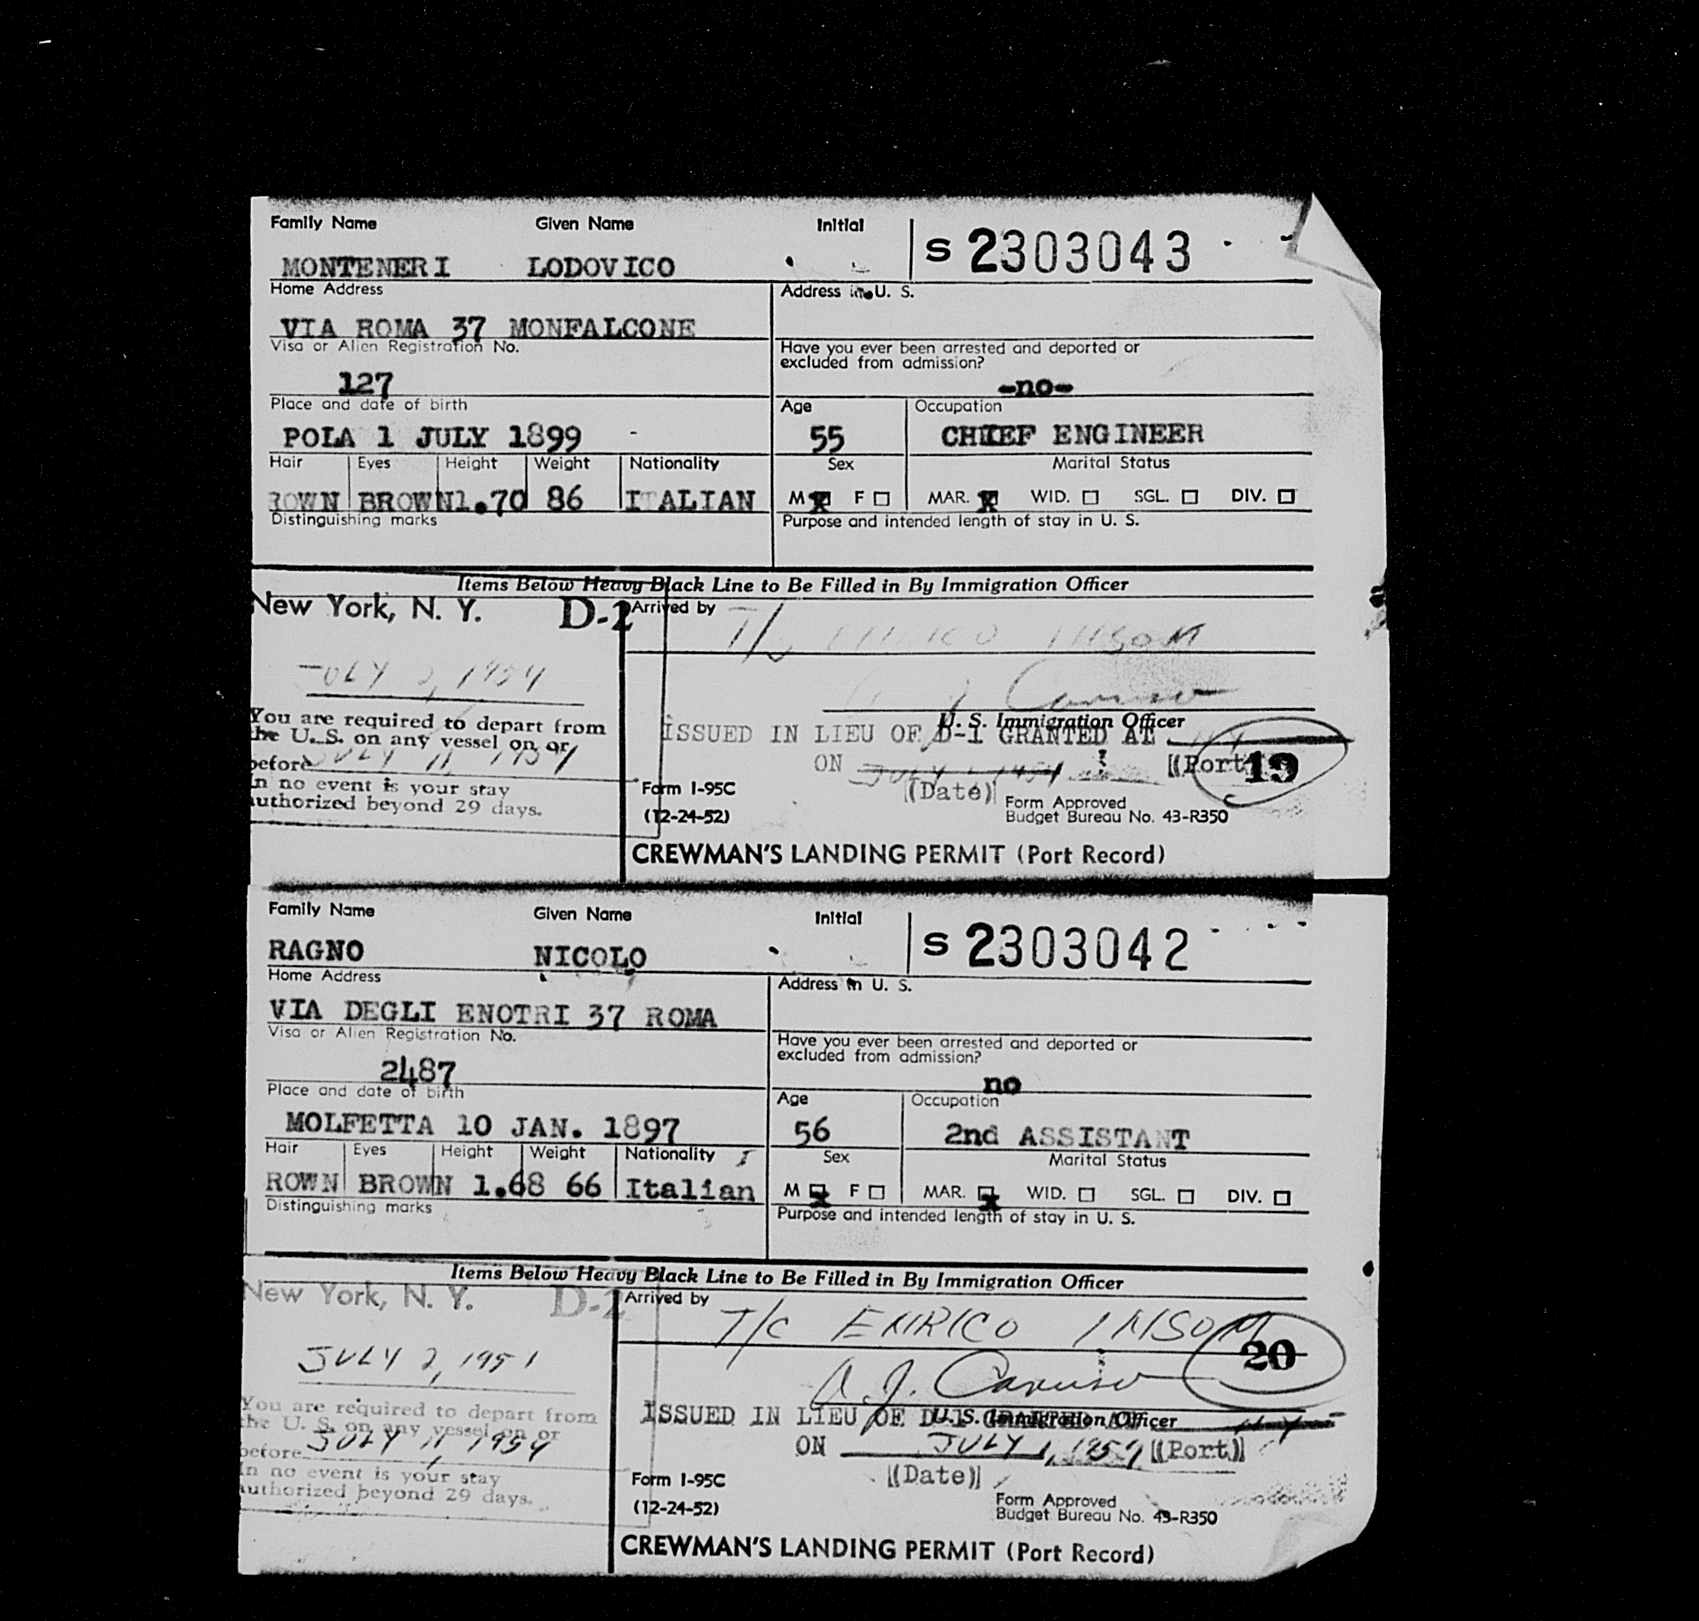 Family Name Given Name Initial
S 2303043
MONTENERI LODOVICO
Home Address
Address in U. S.
VIA ROMA 37 MONFALCONE
Visa or Alien Registration No.
Have you ever been arrested and deported or
excluded from admission?
127
-no-
Place and date of birth
Age Occupation
POLA 1 JULY 1899 -
55 CHIEF ENGINEER
Hair Eyes Height Weight Nationality
Sex Marital Status
ROWN BROWN 1.70 86 ITALIAN
M F MAR. WID. SGL. DIV.
Distinguishing marks
Purpose and intended length of stay in U. S.
Items Below Heavy Black Line to Be Filled in By Immigration Officer
New York, N. Y. D-2
Arrived by
T/
JULY 2, 1954
Caruso
U. S. Immigration Officer
You are required to depart from
the U. S. on any vessel on or
before JULY 11, 1954
In no event is your stay
authorized beyond 29 days.
ISSUED IN LIEU OF D-1 GRANTED AT
ON JULY 1 1954 (Port)
19
(Date)
Form I-95C
(12-24-52)
Form Approved
Budget Bureau No. 43-R350
CREWMAN'S LANDING PERMIT (Port Record)
Family Name Given Name Initial
S 2303042
RAGNO NICOLO
Home Address
Address in U. S.
VIA DEGLI ENOTRI 37 ROMA
Visa or Alien Registration No.
Have you ever been arrested and deported or
excluded from admission?
2487
no
Place and date of birth
Age Occupation
MOLFETTA 10 JAN. 1897
56 2nd ASSISTANT
Hair Eyes Height Weight Nationality
Sex Marital Status
ROWN BROWN 1.68 66 Italian
M F MAR. WID. SGL. DIV.
Distinguishing marks
Purpose and intended length of stay in U. S.
Items Below Heavy Black Line to Be Filled in By Immigration Officer
New York, N. Y. D-2
Arrived by
T/C ENRICO INSOM
20
JULY 2, 1954
A. J. Caruso
U. S. Immigration Officer
You are required to depart from
the U. S. on any vessel on or
before JULY 11, 1954
In no event is your stay
authorized beyond 29 days.
ISSUED IN LIEU OF D-1 GRANTED AT
ON JULY 1, 1954 (Port)
(Date)
Form I-95C
(12-24-52)
Form Approved
Budget Bureau No. 43-R350
CREWMAN'S LANDING PERMIT (Port Record)